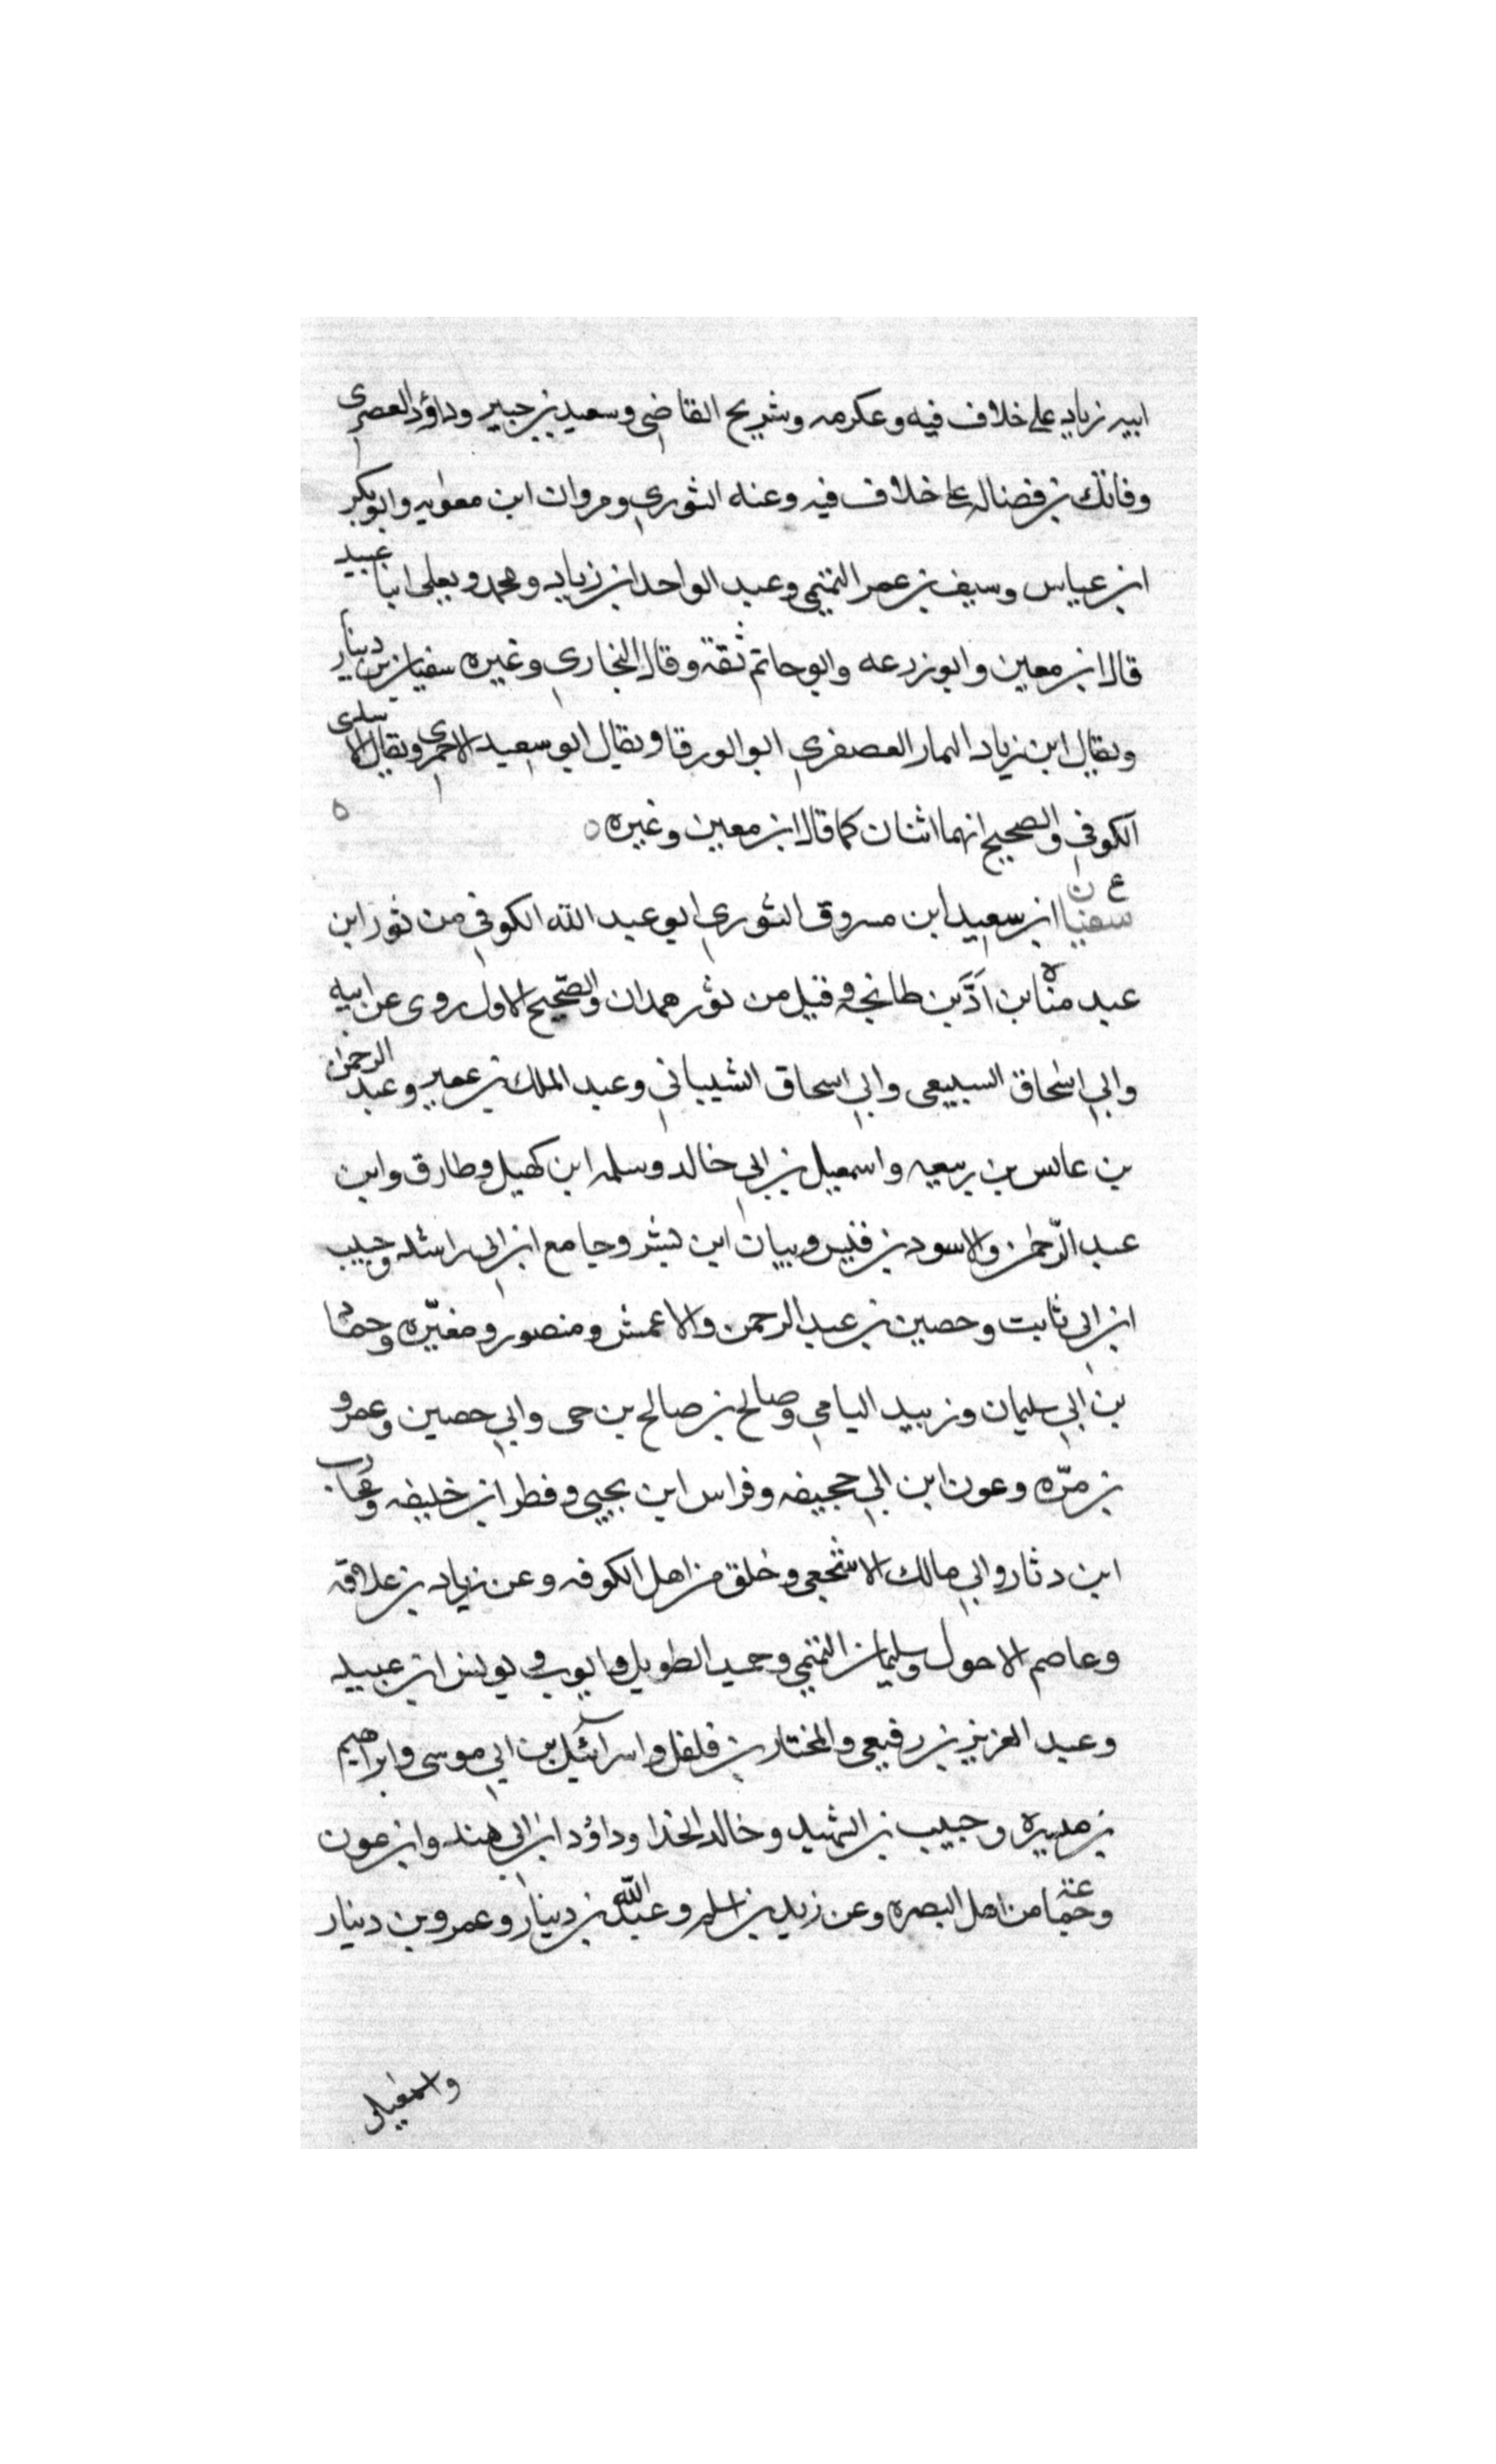 ابيه زياد على خلاف فيه وعكرمه وشريح القاضي وسعيد بن جبير وداؤد العصري
وفاتك بن فضاله على خلاف فيه وعنه الثوري ومروان ابن معويه وابو بكر
ابن عياس وسيف بن عمر التميمي وعبد الواحد ابن زياد ومحمد ويعلى ابنا عبيد
قال ابن معين وابو زرعه وابو حاتم ثقة وقال البخاري وغيره سفيان بن دينار
ويقال ابن زياد العصفري ابو الورقا ويقال ابو سعيد الاحمري ويقال الاسدي
الكوفي والصحيح انهما اثنان كما قال ابن معين وغيره ه
ع
سفيان ابن سعيد ابن مسروق الثوري ابو عبد الله الكوفي من ثور ابن
عبد مناه ابن ادّ بن طابخه وقيل من ثور همدان والصّحيح الاول روى عن ابيه
وابي اسحاق السبيعي وابي اسحاق الشيباني وعبد الملك بن عمير وعبد الرحمن
بن عابس بن ربيعه واسمعيل بن ابي خالد وسلمه ابن كهيل وطارق وابن
عبد الرّحمن والاسود بن قيس وبيان ابن بشر وجامع ابن ابي راشد وحبيب
ابن ابي ثابت وحصين بن عبد الرحمن والاعمش ومنصور ومغيّره وحماد
بن ابي سليمان وزبيد اليامي وصالح بن صالح بن حي وابي حصين وعمرو
بن مرّه وعون ابن ابي جحيفه وفراس ابن يحيى وفطر ابن خليفه ومحارب
ابن دثار وابي مالك الاشجعي وخلق من اهل الكوفه وعن زياد بن علاقه
وعاصم الاحول وسليمان التميمي وحميد الطويل وايوب ويونس ابن عبيد
وعبد العزيز بن رفيعي والمختار بن فلفل واسرائيل بن ابي موسى وابراهيم
بن ميسره وحبيب بن الشهيد وخالد الحذا وداؤد ابن ابي هند وابن عون
وجماعة من اهل البصره وعن زيد بن اسلم وعبد الله بن دينار وعمرو بن دينار
واسمعيل